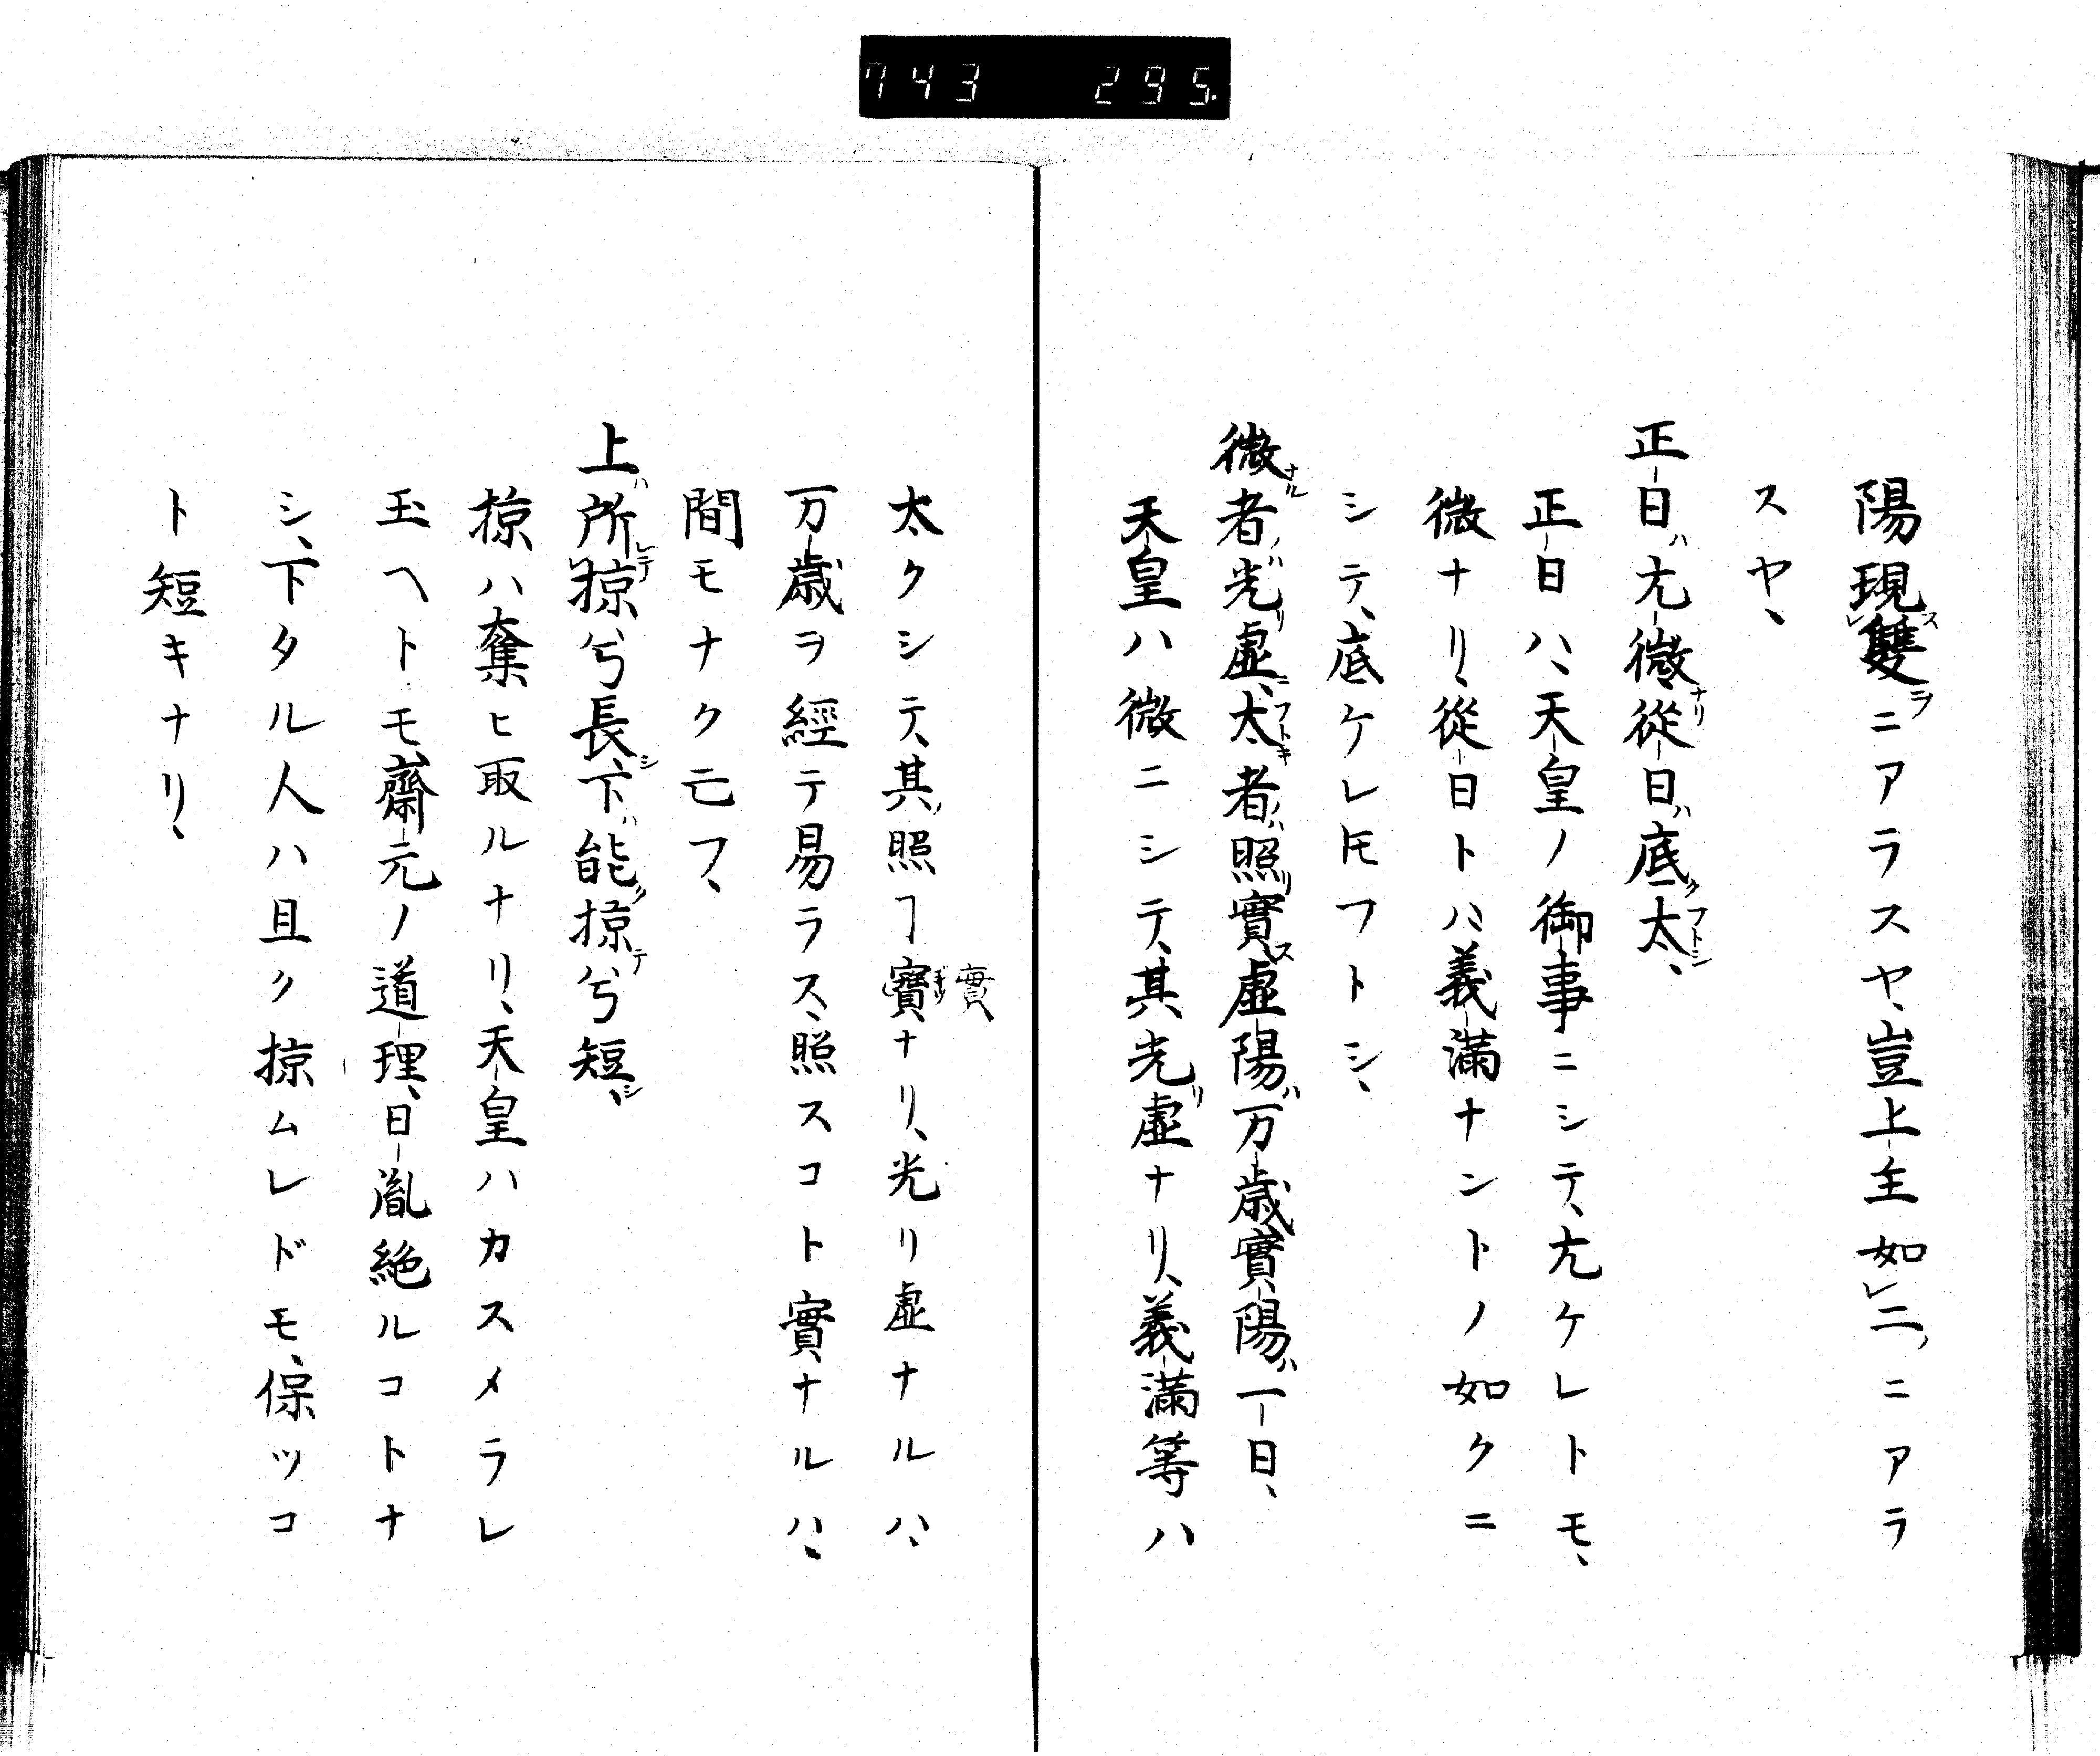 743 295.
陽現雙ニアラスヤ、豈上主如二ニアラ
スヤ、
正日ハ尢微ナリ從日ハ底ク太シ、
正日ハ、天皇ノ御事ニシテ、尢ケレトモ、
微ナリ、從日トハ、義滿ナントノ如クニ
シテ、底ケレ𪜈フトシ、
微ナル者ノハ光リ虛ニ、太キ者ノハ照リ實ス虛陽ハ万歳實陽ハ一日、
天皇ハ微ニシテ、其光リ虛ナリ、義滿等ハ
太クシテ、其ノ照ヿ實ナリ、光リ虛ナルハ、
實
万歳ヲ經テ易ラス、照スコト實ナルハ、
間モナク亡フ、
上ハ所レテ掠兮長シ、下ハ能ク掠テ兮短シ、
掠ハ奪ヒ取ルナリ、天皇ハカスメラレ
玉ヘトモ、齋元ノ道理、日胤絶ルコトナ
シ、下タル人ハ且ク掠ムレドモ、保ツコ
ト短キナリ、